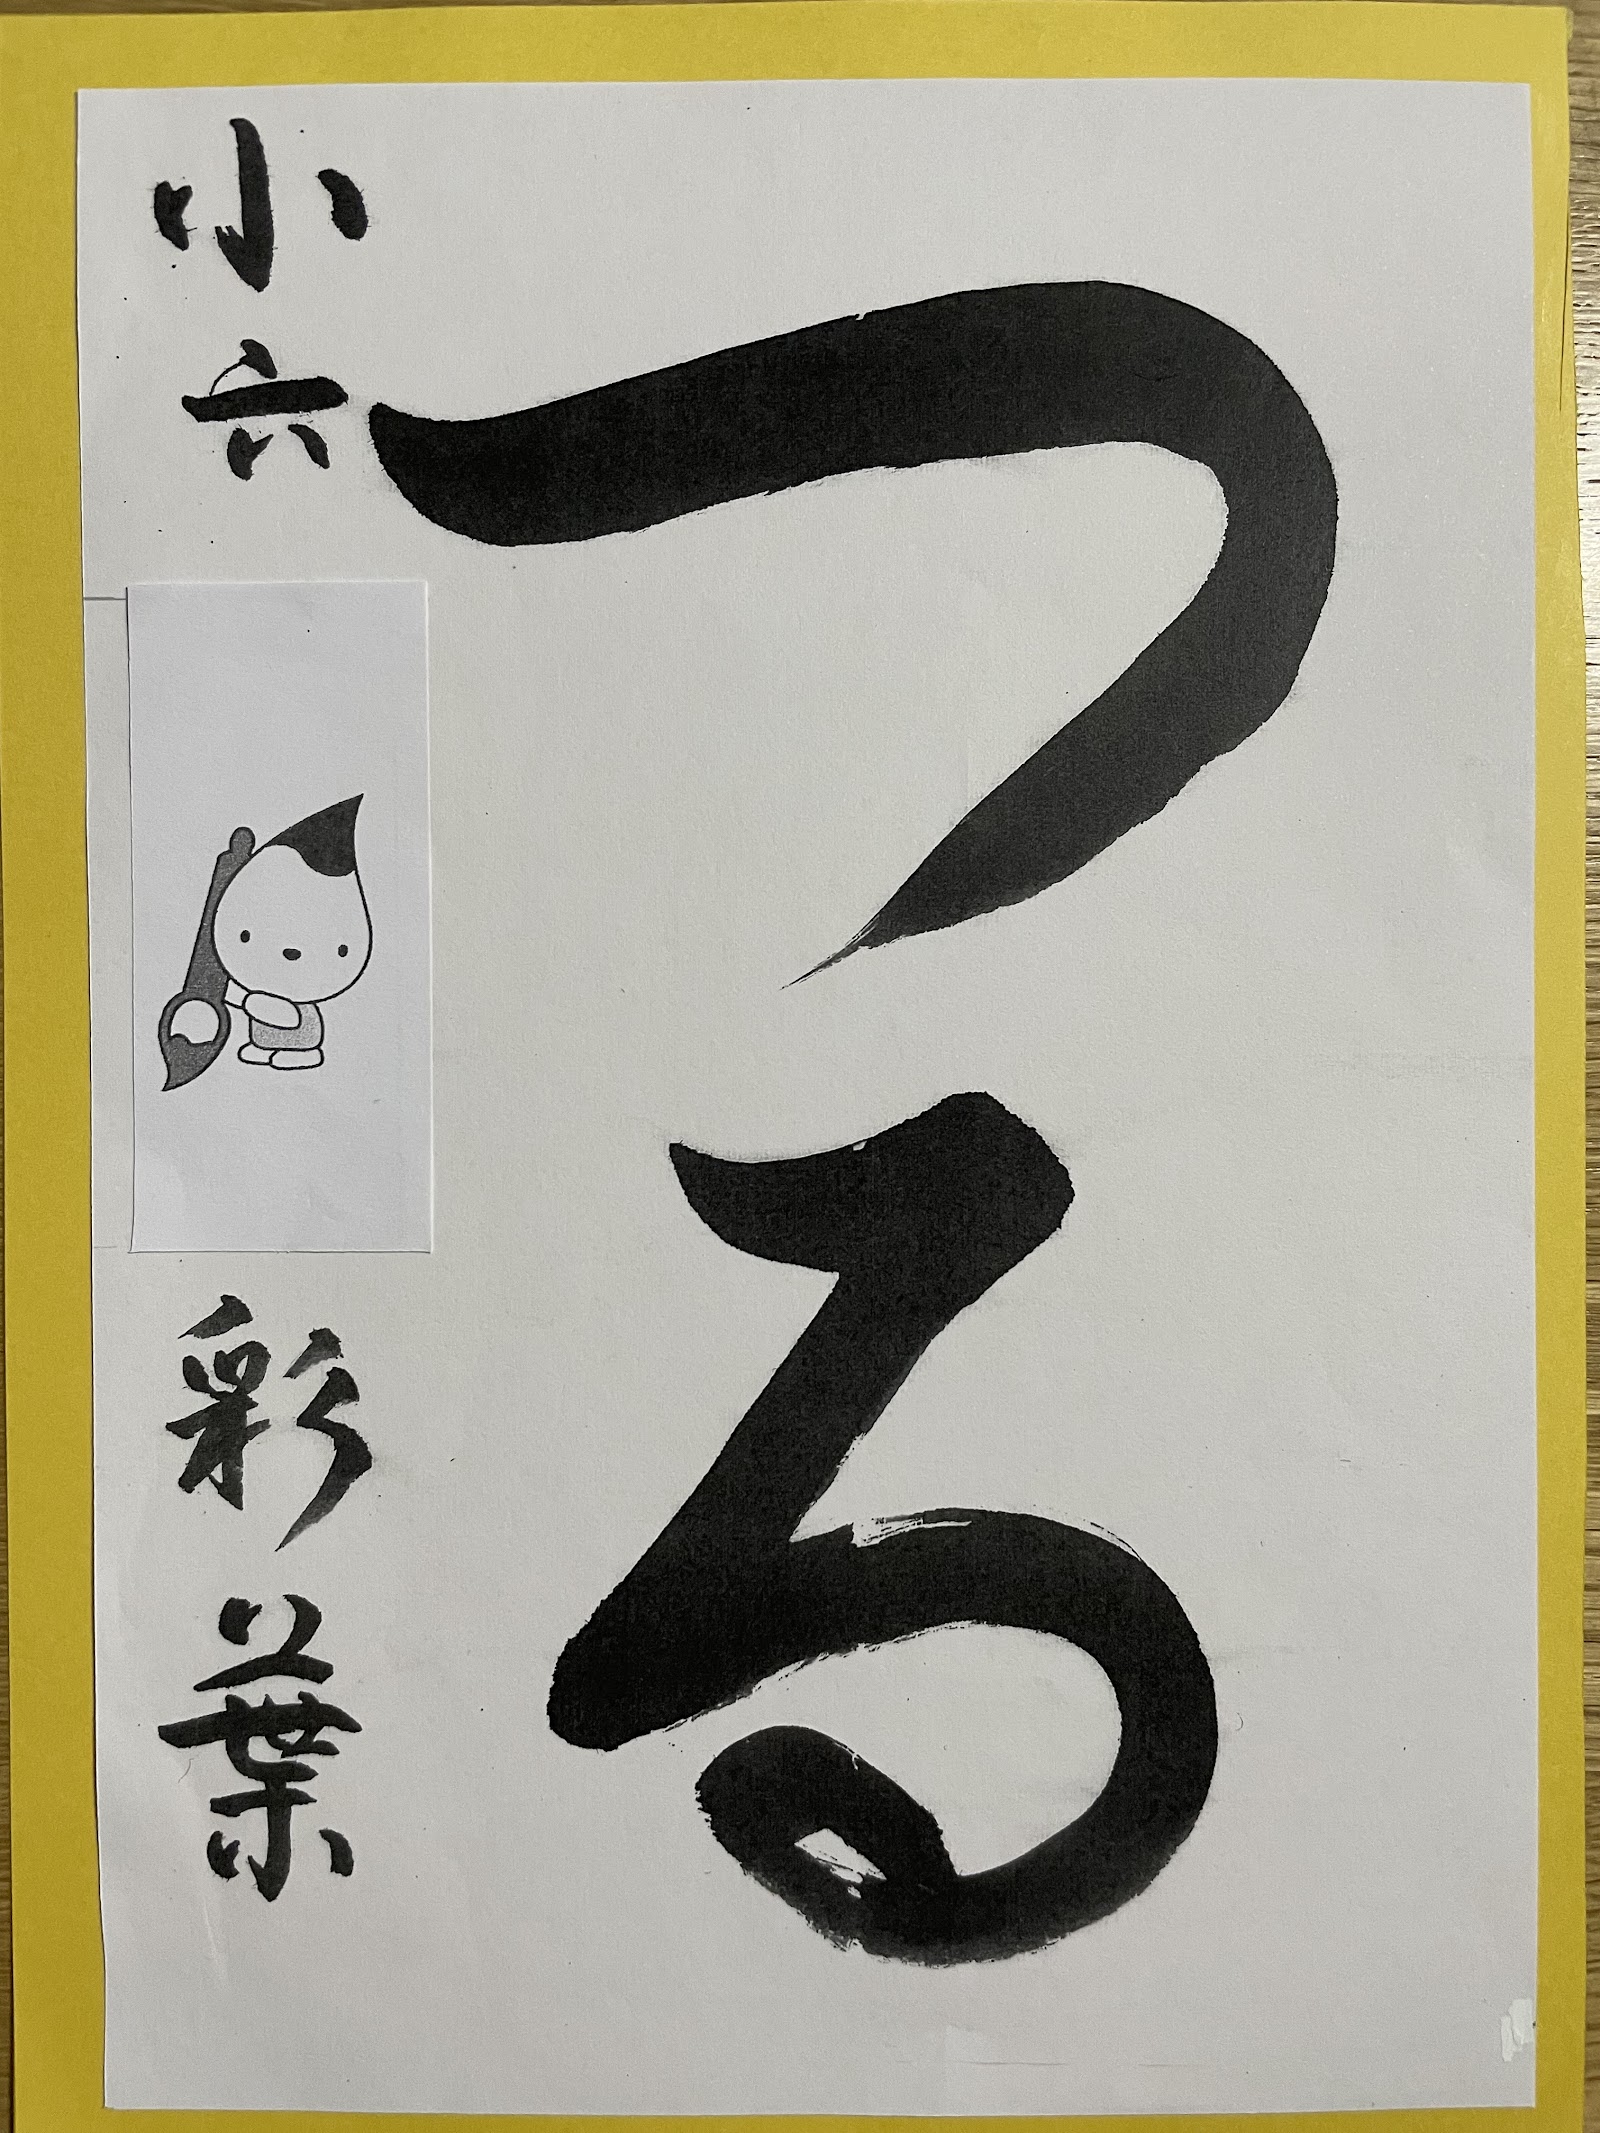 つる
小六 彩葉